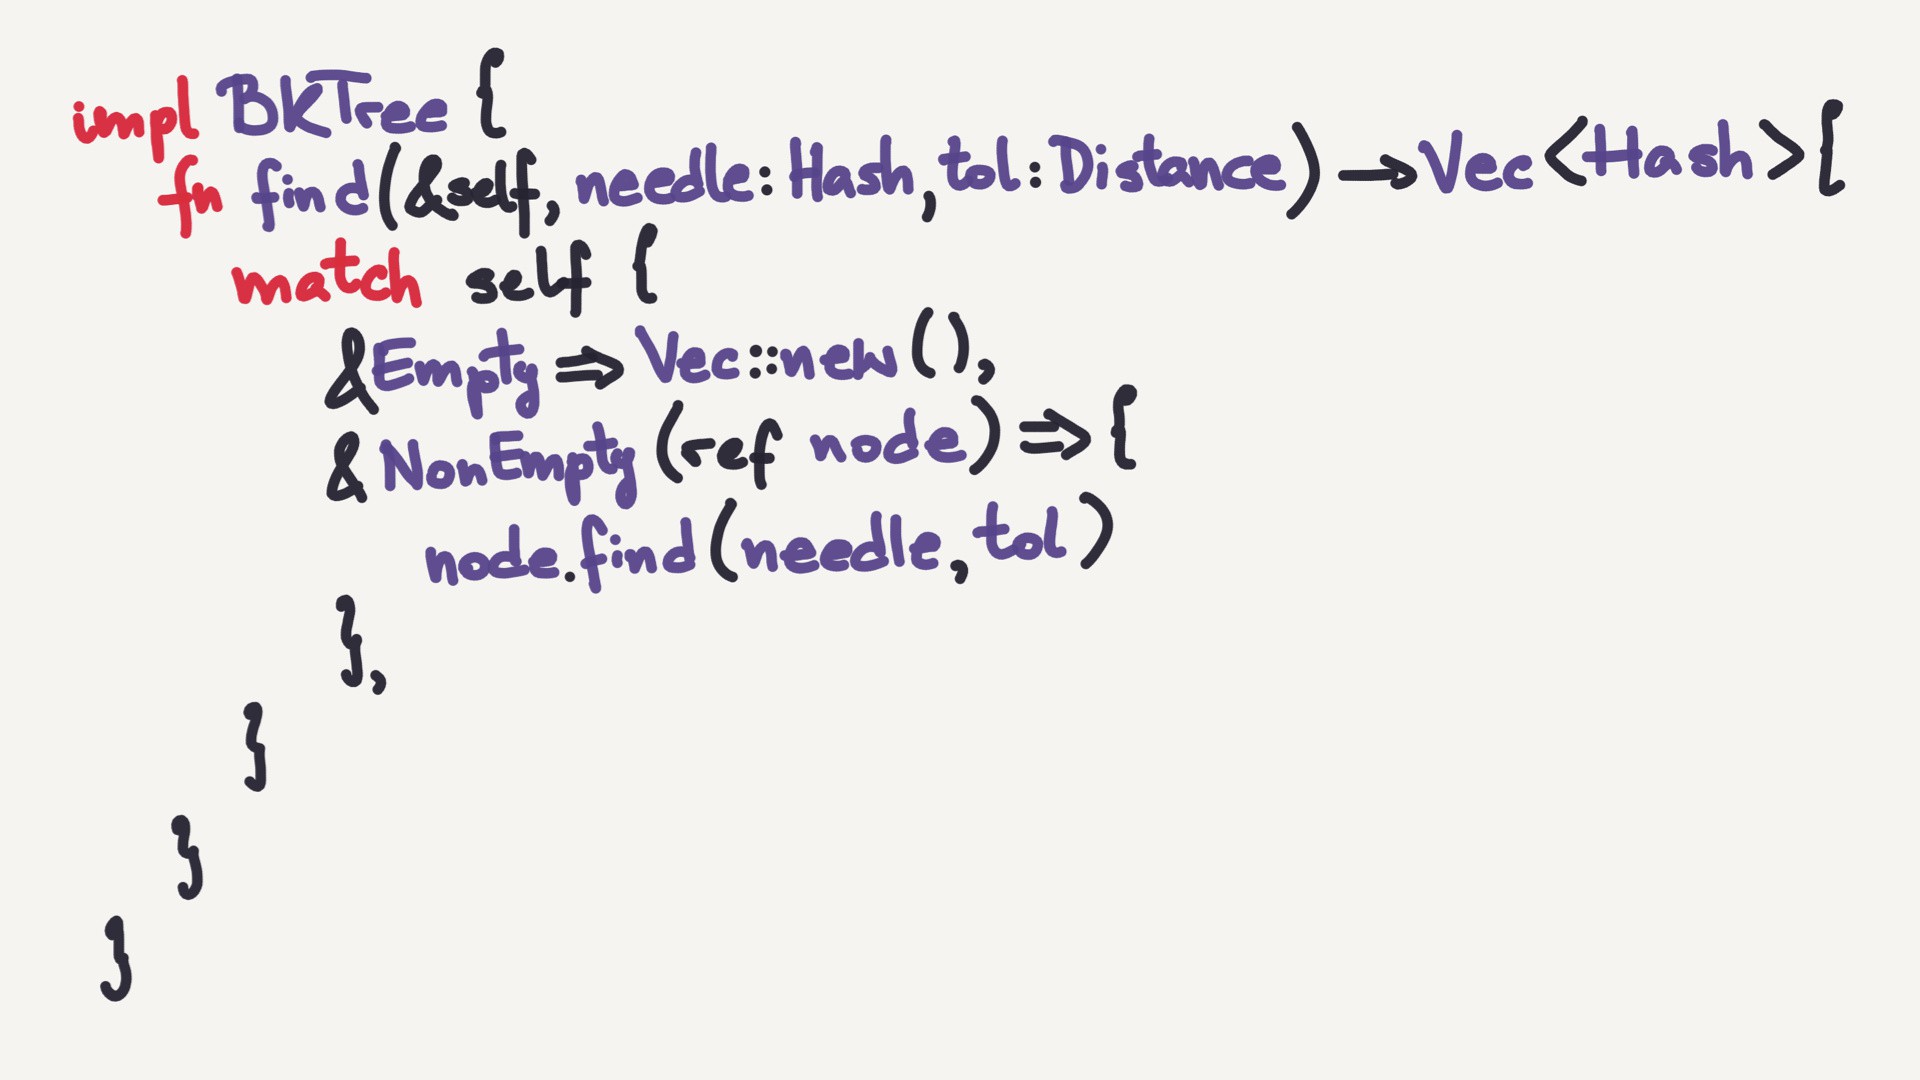 impl BKTree {
fn find(&self, needle: Hash, tol: Distance) → Vec<Hash> {
match self {
&Empty ⇒ Vec::new(),
&NonEmpty(ref node) ⇒ {
node.find(needle, tol)
},
}
}
}